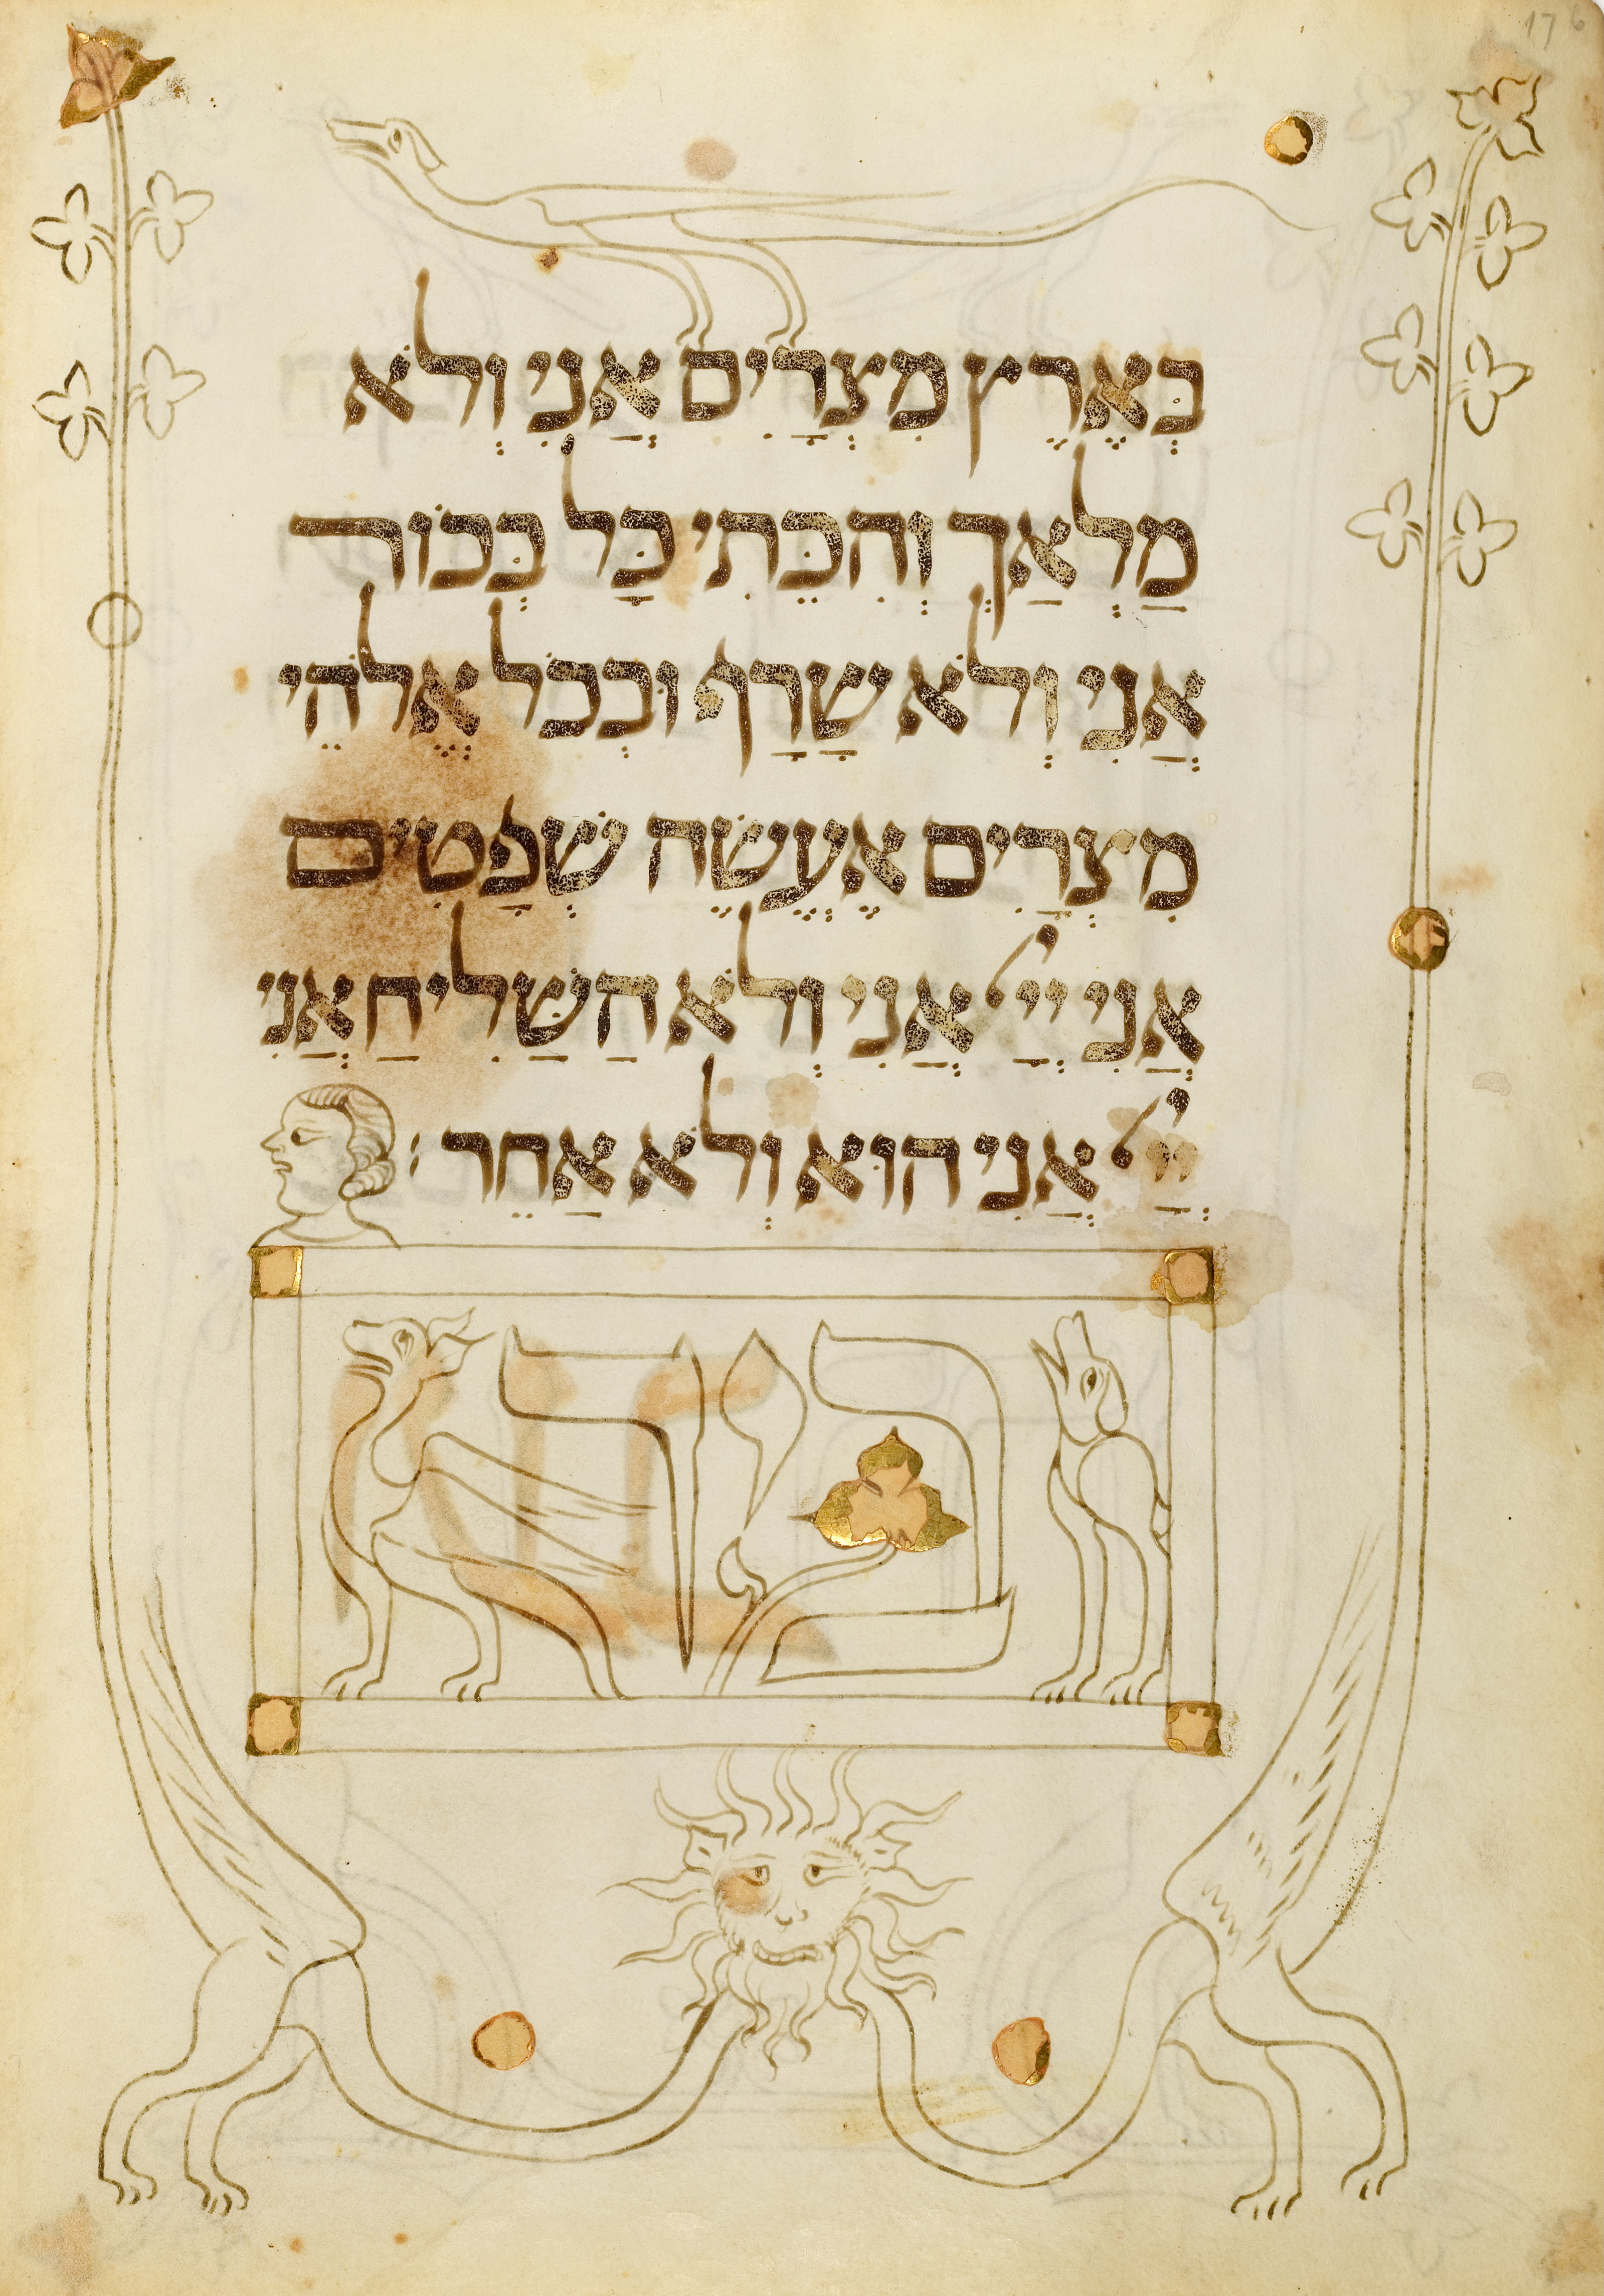 בְּאֶרֶץ מִצְרַיִם אֲנִי וְלֹא
מַלְאַךְ וְהִכֵּתִי כָּל בְּכוֹר
אֲנִי וְלֹא שָׂרָף וּבְכֹל אֱלֹהֵי
מִצְרַיִם אֶעֱשֶׂה שְׁפָטִים
אֲנִי יְיַ אֲנִי וְלֹא הַשַּׁלִיחַ אֲנִי
יְיַ אֲנִי הוּא וְלֹא אַחֵר:
ביד